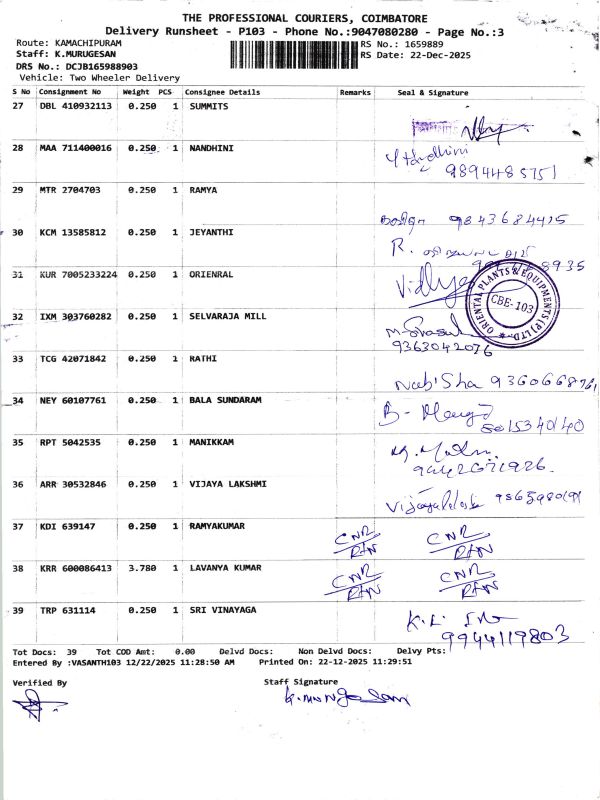 THE PROFESSIONAL COURIERS, COIMBATORE
Delivery Runsheet - P103 - Phone No.:9047080280 - Page No.:3
Route: KAMACHIPURAM RS No.: 1659889
Staff: K.MURUGESAN RS Date: 22-Dec-2025
DRS No.: DCJB165988903
Vehicle: Two Wheeler Delivery
S No Consignment No Weight PCS Consignee Details Remarks Seal & Signature
27 DBL 410932113 0.250 1 SUMMITS
28 MAA 711400016 0.250 1 NANDHINI
9894485751
29 MTR 2704703 0.250 1 RAMYA
9843684415
30 KCM 13585812 0.250 1 JEYANTHI
R.
31 KUR 7005233224 0.250 1 ORIENRAL Vidhya
ORIENTAL PLANTS & EQUIPMENTS (P) LTD.
CBE-103
32 IXM 303760282 0.250 1 SELVARAJA MILL
9363042076
33 TCG 42071842 0.250 1 RATHI
Nabisha 9360668761
34 NEY 60107761 0.250 1 BALA SUNDARAM
8015340140
35 RPT 5042535 0.250 1 MANIKKAM
9442671926
36 ARR 30532846 0.250 1 VIJAYA LAKSHMI
37 KDI 639147 0.250 1 RAMYAKUMAR CNR CNR
38 KRR 600086413 3.780 1 LAVANYA KUMAR CNR CNR
39 TRP 631114 0.250 1 SRI VINAYAGA
9944119803
Tot Docs: 39 Tot COD Amt: 0.00 Delvd Docs: Non Delvd Docs: Delvy Pts:
Entered By :VASANTH103 12/22/2025 11:28:50 AM Printed On: 22-12-2025 11:29:51
Verified By Staff Signature
K.Murugesan